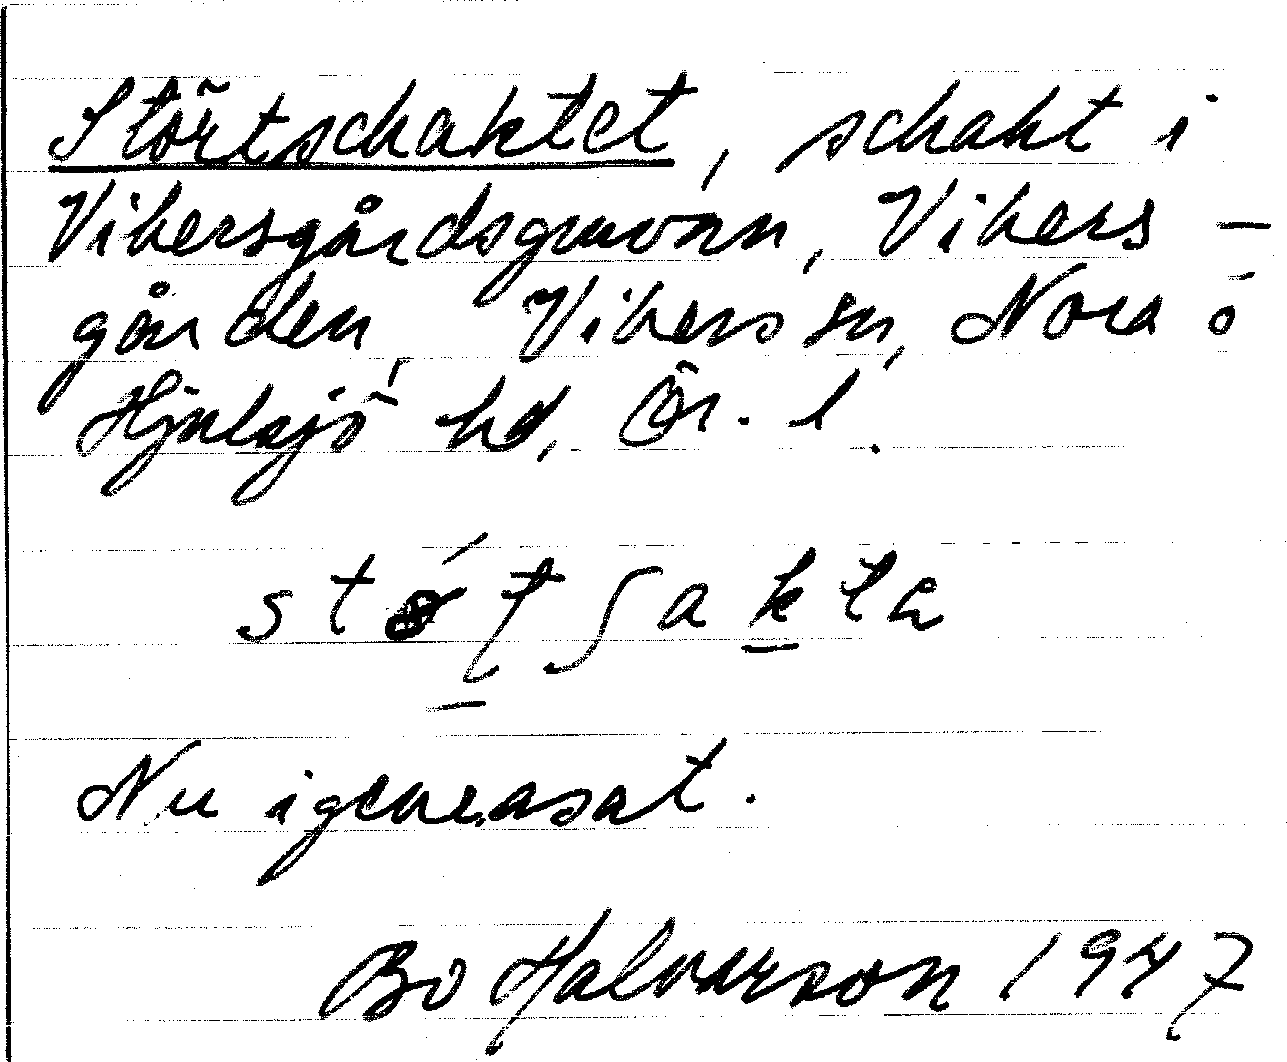 Störtschaktet, schakt i
Vikersgårdsgruvan, Vikers-
gården, Vikers sn, Nora o
Hjulsjö hd, Ör. l.
Nu igenrasat.
Bo Halvarson 1947